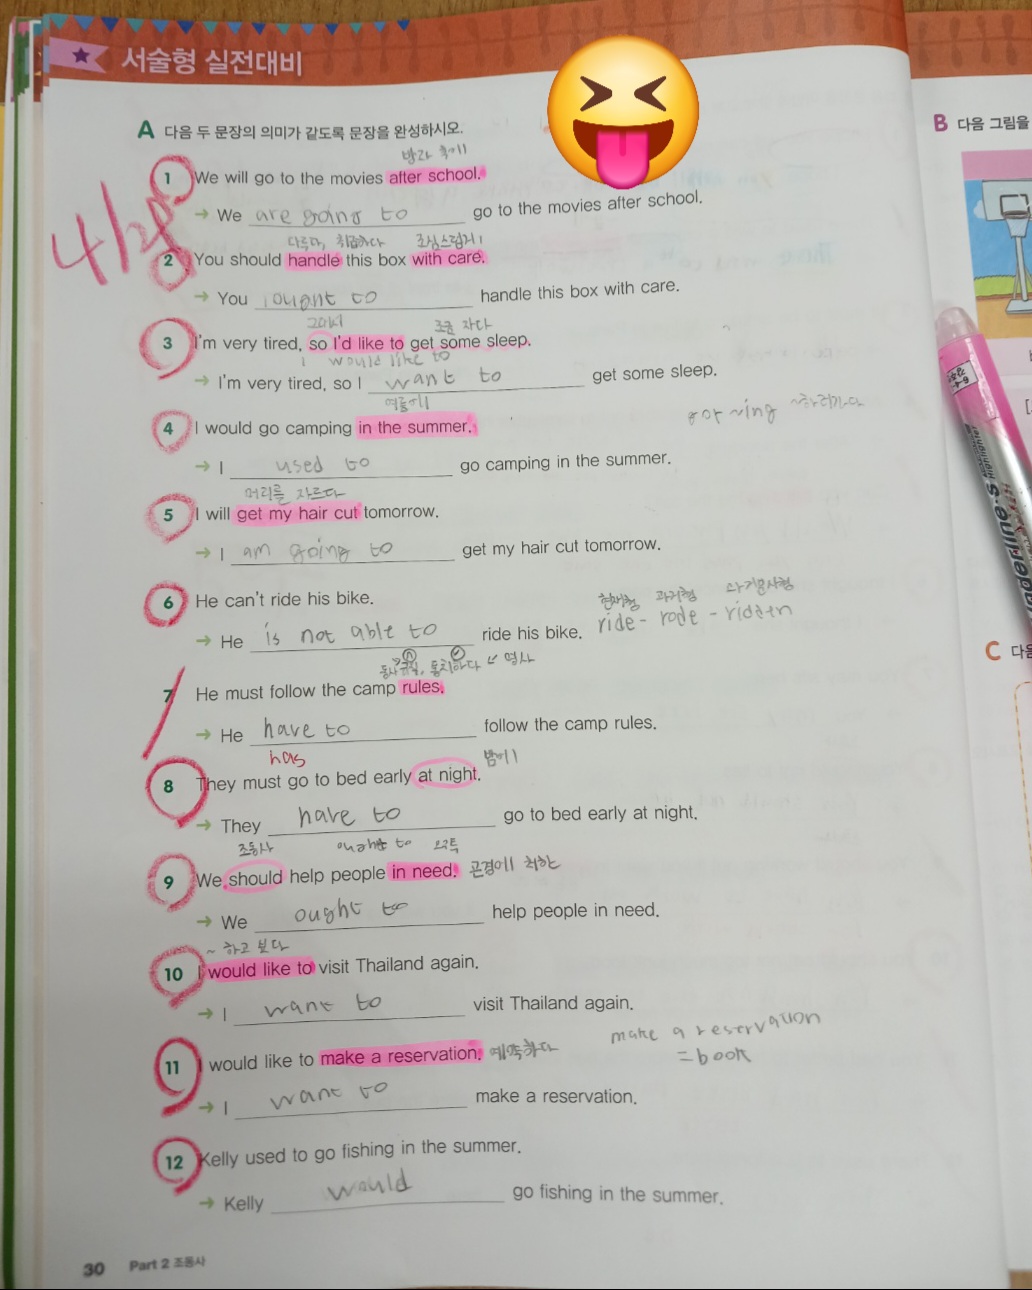 서술형 실전대비
A 다음 두 문장의 의미가 같도록 문장을 완성하시오.
방과 후에
1 We will go to the movies after school.
→ We are going to go to the movies after school.
다루다, 취급하다 조심스럽게
2 You should handle this box with care.
→ You ought to handle this box with care.
그래서 조금 자다
3 I'm very tired, so I'd like to get some sleep.
I would like to
→ I'm very tired, so I want to get some sleep.
여름에
4 I would go camping in the summer.
go ~ing ~하러가다
→ I used to go camping in the summer.
머리를 자르다
5 I will get my hair cut tomorrow.
→ I am going to get my hair cut tomorrow.
6 He can't ride his bike.
현재형 과거형 과거분사형
→ He is not able to ride his bike. ride - rode - ridden
규칙, 통치하다 명사
7 He must follow the camp rules.
→ He have to follow the camp rules.
has
밤에
8 They must go to bed early at night.
→ They have to go to bed early at night.
조동사 ought to
9 We should help people in need. 곤경에 처한
→ We ought to help people in need.
~ 하고 보다
10 I would like to visit Thailand again.
→ I want to visit Thailand again.
make a reservation
11 I would like to make a reservation. 예약하다
= book
→ I want to make a reservation.
12 Kelly used to go fishing in the summer.
→ Kelly would go fishing in the summer.
30 Part 2 조동사
B 다음 그림을
C 다음